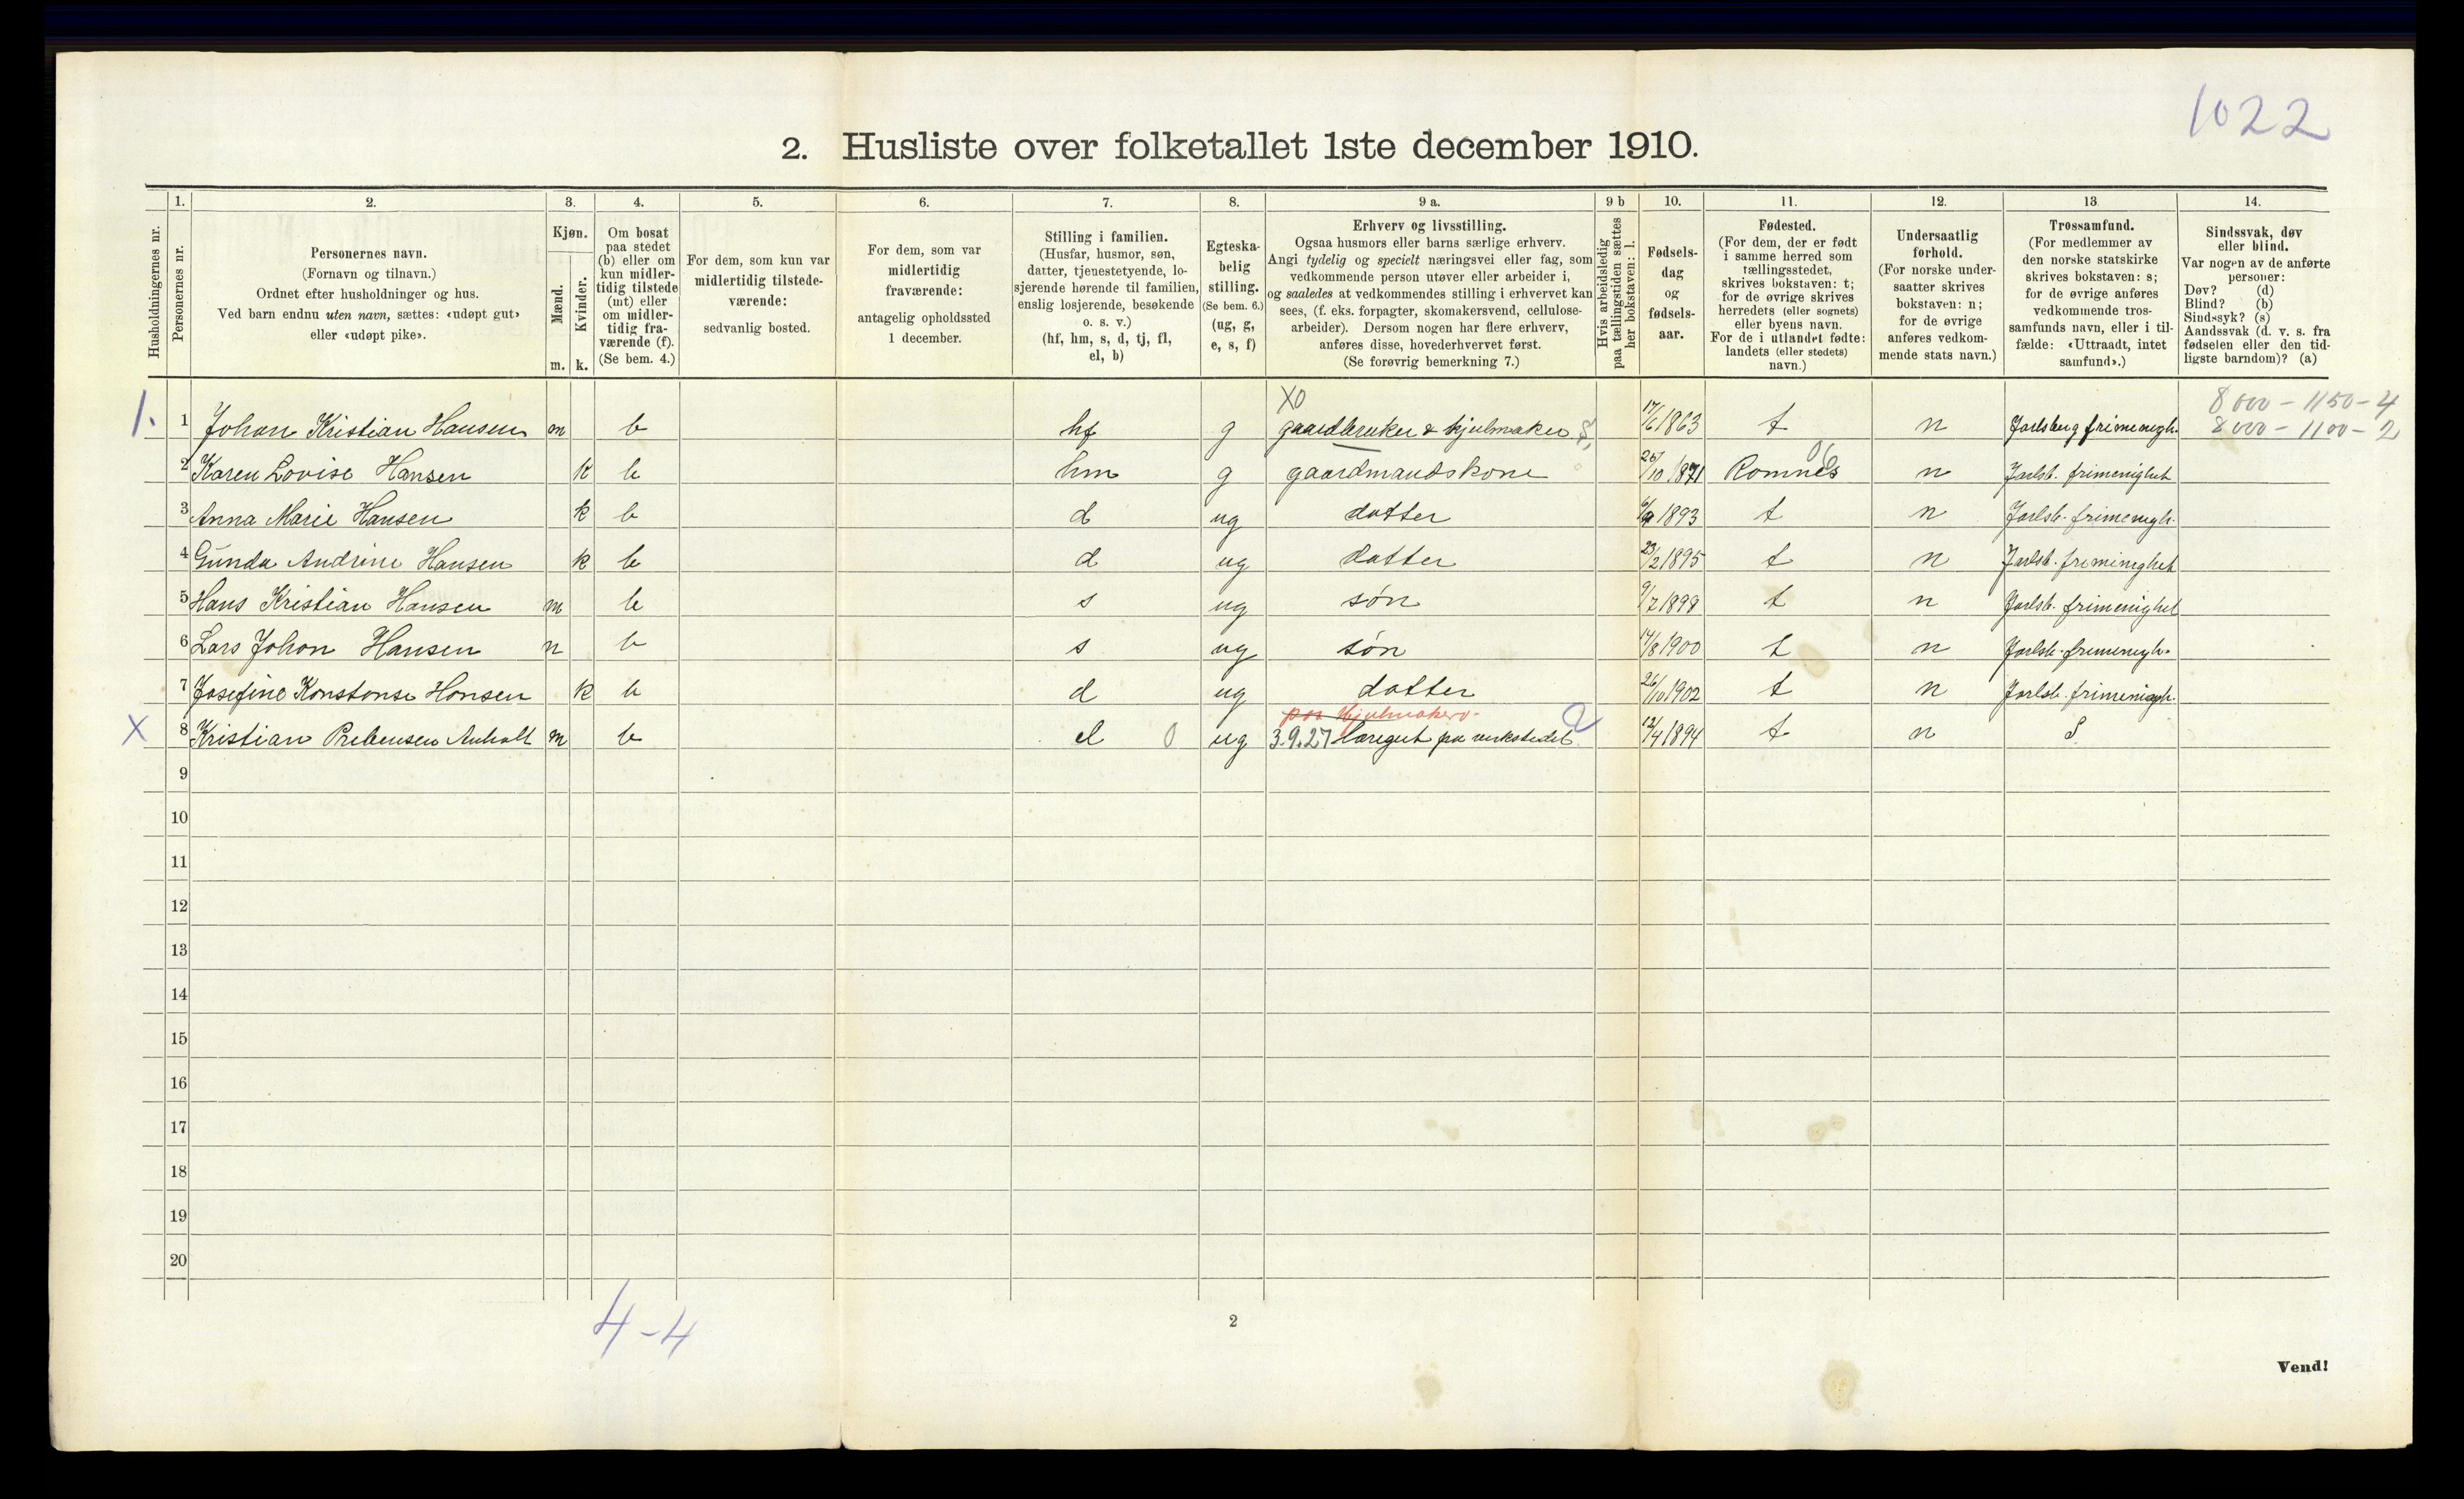 1022
2. Husliste over folketallet 1ste december 1910.
Husholdningernes nr.
1.
Personernes nr.
2.
Personernes navn.
(Fornavn og tilnavn.)
Ordnet efter husholdninger og hus.
Ved barn endnu uten navn, sættes: «udøpt gut»
eller «udøpt pike».
3.
Kjøn.
Mænd.
Kvinder.
m. k.
4.
Om bosat
paa stedet
(b) eller om
kun midler-
tidig tilstede
(mt) eller
om midler-
tidig fra-
værende (f).
(Se bem. 4.)
5.
For dem, som kun var
midlertidig tilstede-
værende:
sedvanlig bosted.
6.
For dem, som var
midlertidig
fraværende:
antagelig opholdssted
1 december.
7.
Stilling i familien.
(Husfar, husmor, søn,
datter, tjenestetyende, lo-
sjerende hørende til familien,
enslig losjerende, besøkende
o. s. v.)
(hf, hm, s, d, tj, fl,
el, b)
8.
Egteska-
belig
stilling.
(Se bem. 6.)
(ug, g,
e, s, f)
9 a.
Erhverv og livsstilling.
Ogsaa husmors eller barns særlige erhverv.
Angi tydelig og specielt næringsvei eller fag, som
vedkommende person utøver eller arbeider i,
og saaledes at vedkommendes stilling i erhvervet kan
sees, (f. eks. forpagter, skomakersvend, cellulose-
arbeider). Dersom nogen har flere erhverv,
anføres disse, hovederhvervet først.
(Se forøvrig bemerkning 7.)
9 b
Hvis arbeidsledig
paa tællingstiden sættes
her bokstaven: l.
10.
Fødsels-
dag
og
fødsels-
aar.
11.
Fødested.
(For dem, der er født
i samme herred som
tællingsstedet,
skrives bokstaven: t;
for de øvrige skrives
herredets (eller sognets)
eller byens navn.
For de i utlandet fødte:
landets (eller stedets)
navn.)
12.
Undersaatlig
forhold.
(For norske under-
saatter skrives
bokstaven: n;
for de øvrige
anføres vedkom-
mende stats navn.)
13
Trossamfund.
(For medlemmer av
den norske statskirke
skrives bokstaven: s;
for de øvrige anføres
vedkommende tros-
samfunds navn, eller i til-
fælde: «Uttraadt, intet
samfund».)
14.
Sindssvak, døv
eller blind.
Var nogen av de anførte
personer:
Døv? (d)
Blind? (b)
Sindssyk? (s)
Aandssvak (d. v. s. fra
fødselen eller den tid-
ligste barndom)? (a)
XO 8000 - 1150 - 4
1. 1 Johan Kristian Hansen m b hf g gaardbruker & hjulmaker 17/6 1863 t n Jarlsberg frimenigh. 8000 - 1100 - 2
06
2 Karen Lovise Hansen k b hm g gaardmandskone 25/10 1871 Romnes n Jarlsb. frimenighet
3 Anna Marie Hansen k b d ug datter 6/9 1893 t n Jarlsb. frimenigh.
4 Gunda Andrine Hansen k b d ug datter 23/2 1895 t n Jarlsb. frimenighet
5 Hans Kristian Hansen m b s ug søn 9/7 1898 t n Jarlsb. frimenighet
6 Lars Johan Hansen m b s ug søn 14/8 1900 t n Jarlsb. frimenigh.
7 Josefine Konstanse Hansen k b d ug datter 26/10 1902 t n Jarlsb. frimenigh.
paa Hjulmakerv.
X 8 Kristian Prebensen Anholt m b el 0 ug 3.9.27 Læregut pa verkstedet 12/4 1894 t n S
9
10
11
12
13
14
15
16
17
18
19
20
4-4
2
Vend!